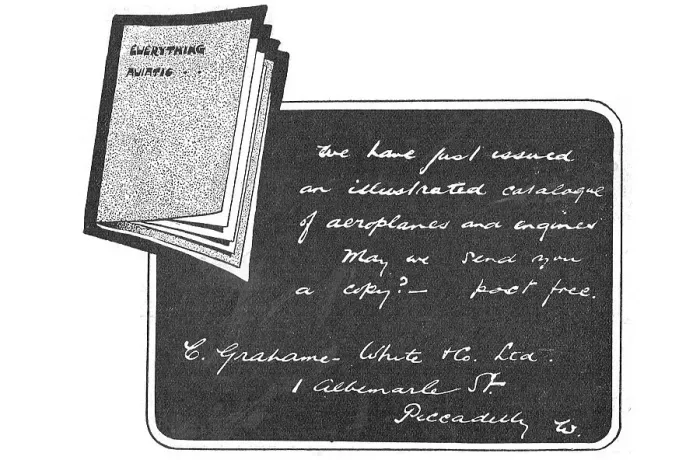 EVERYTHING
AVIATIC - -
We have just issued
an illustrated catalogue
of aeroplanes and engines
May we send you
a copy? — post free.
C. Grahame-White & Co. Ltd.
1 Albemarle St.
Piccadilly W.